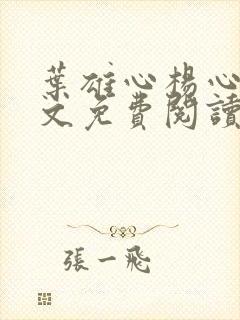 葉雄心楊心
文免費閱讀
張一飛